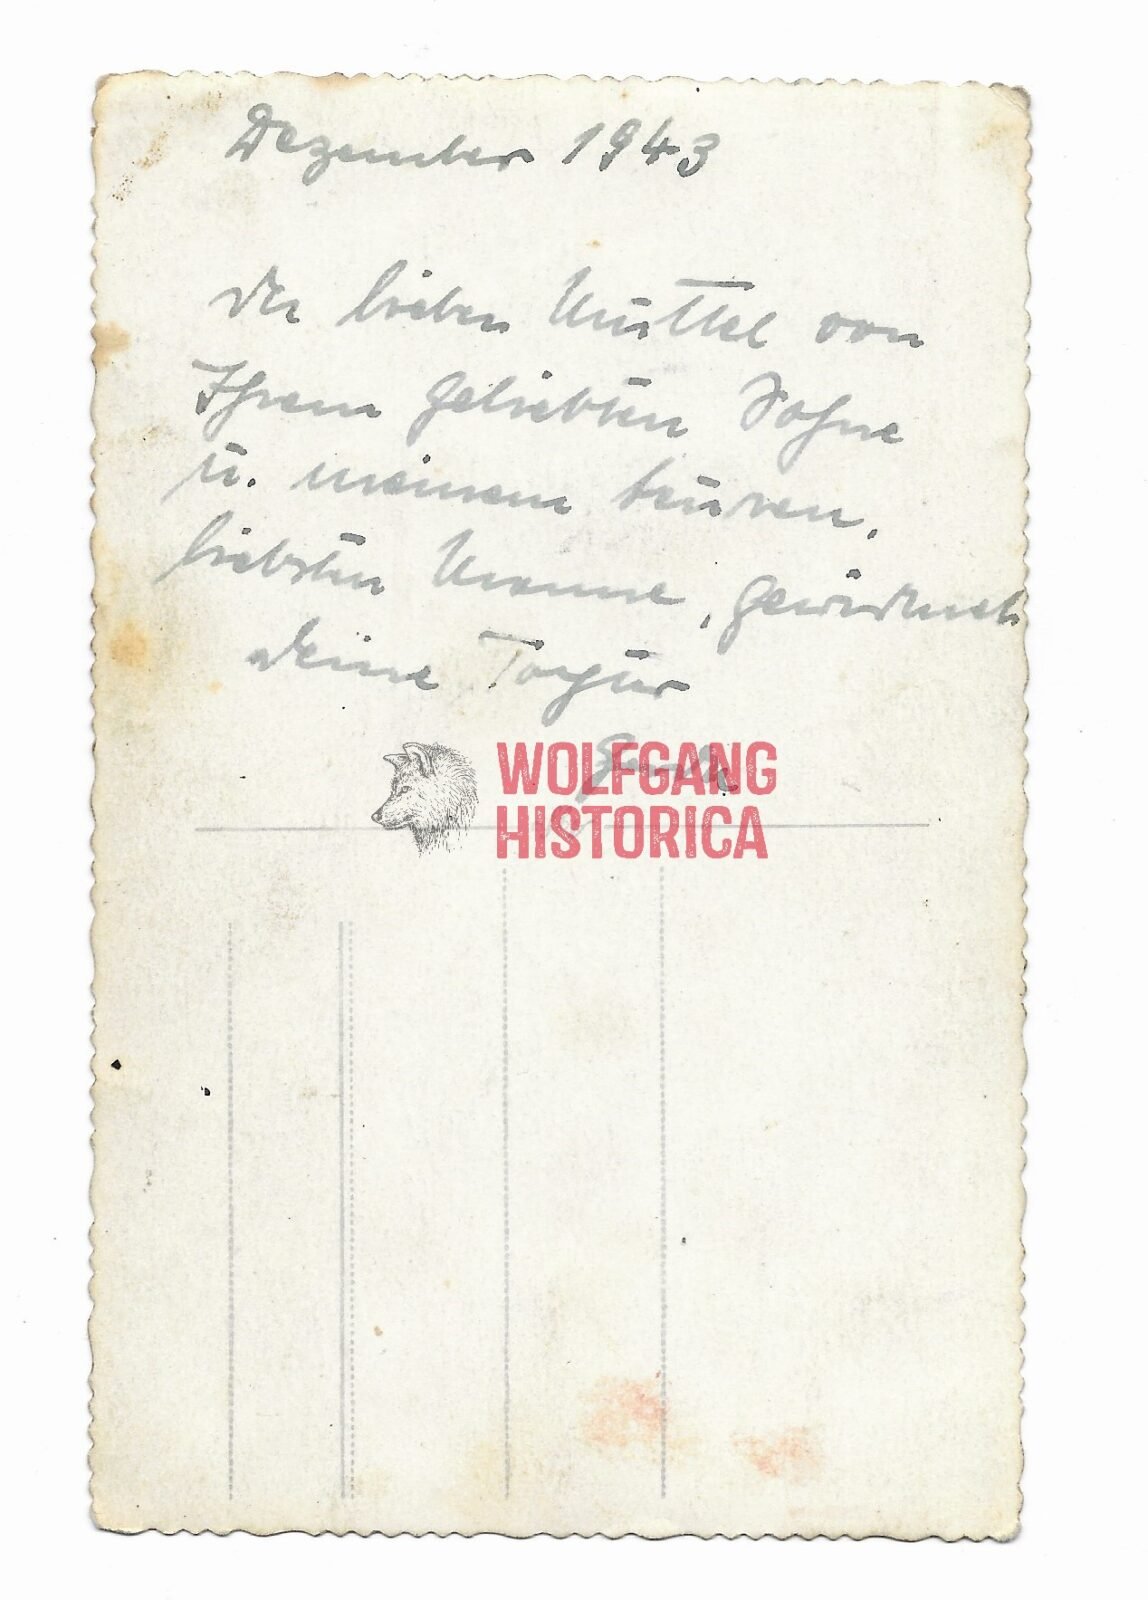 Dezember 1943
Der lieben Muttel von
Ihrem geliebten Sohne
u. meinem teuren,
liebsten Manne, gewidmet
Deine
WOLFGANG
HISTORICA